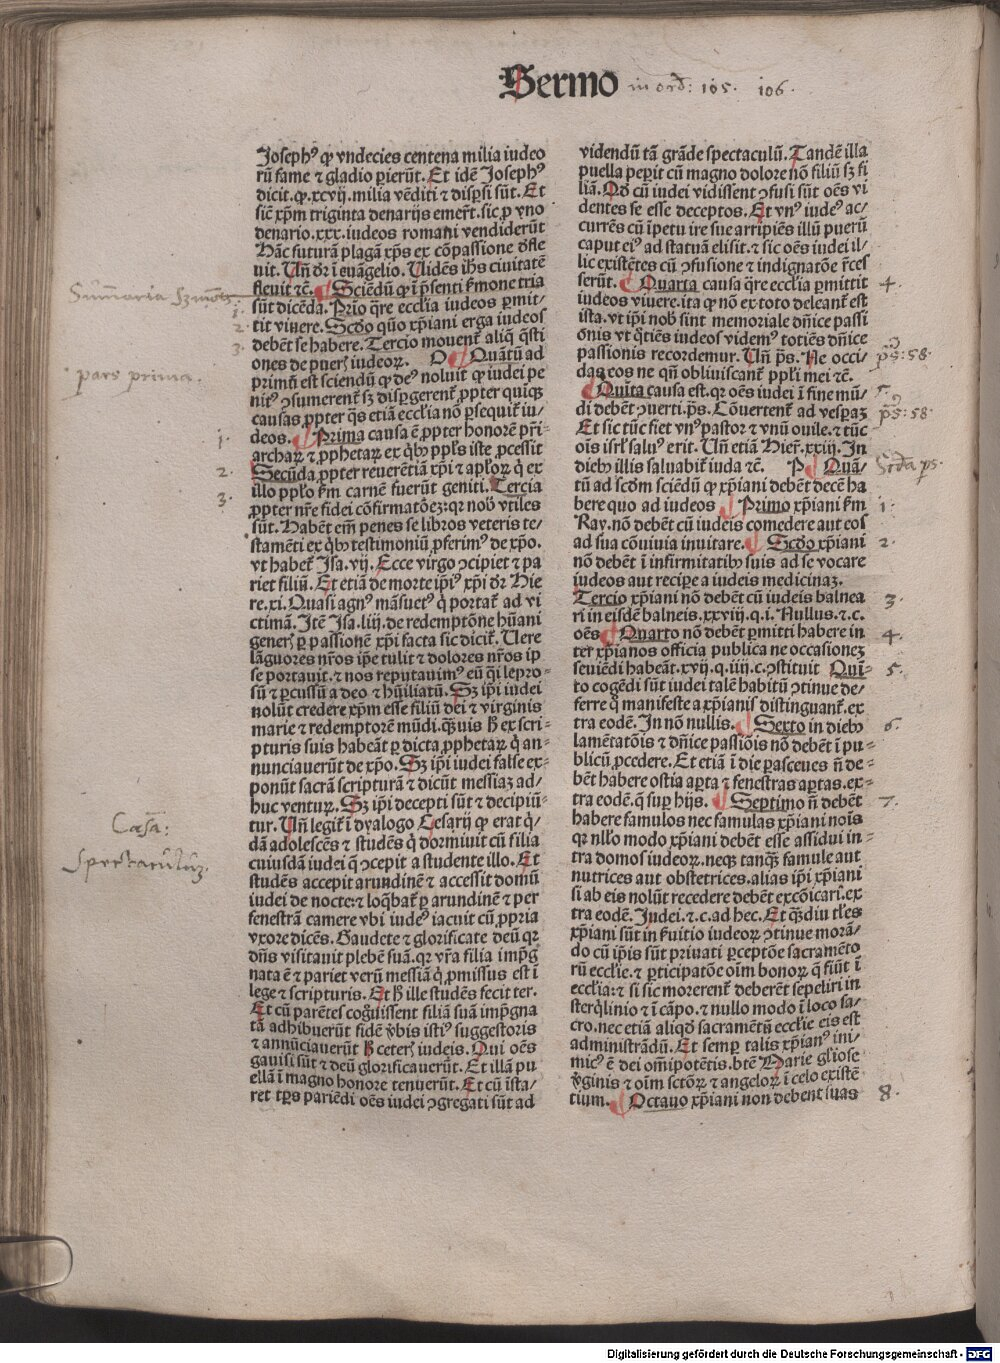 Sermo in ord: 105. 106.
Joseph⁹ ꝙ vndecies centena milia iudeo
rū fame ⁊ gladio ꝑierūt. Et idē Joseph⁹
dicit. ꝙ. xcvij. milia vēditi ⁊ disꝑsi sūt. Et
sic̄ xp̄m triginta denarijs emer̄t. sic ꝓ vno
denario. xxx. iudeos romani vendiderūt
Hāc futurā plagā xp̄s ex cōpassione defle
uit. Un̄ dr̄ ī euāgelio. Uidēs ih̄s ciuitatē
fleuit ⁊c̄. Sciēdū ꝙ ī p̄senti ẜmone tria
sūt dicēda. Prīo q̄re ecclīa iudeos ꝑmit⸗
tit viuere. Scd̄o quō xp̄iani erga iudeos
debēt se habere. Tercio mouent᷑ aliq̄ q̄sti
ones de pueris iudeoꝝ. Quātū ad
primū est sciendū ꝙ de⁹ noluit ꝙ iudei pe
nit⁹ ꝯsumerent᷑ sꝫ disꝑgerent᷑ ꝓpter quinqꝫ
causas ꝓpter q̄s etiā ecclīa nō ꝑsequit᷑ iu⸗
deos. Prima causa ē ꝓpter honorē pr̄i⸗
archaꝝ ⁊ ꝓphetaꝝ ex q̄bꝰ ppl̄s iste ꝓcessit
Secūda ꝓpter reuerētiā xp̄i ⁊ apl̄oꝝ q̄ ex
illo ppl̄o ẜm carnē fuerūt geniti. Tercia
ꝓpter nr̄e fidei cōfirmatōeꝫ: qꝛ nob̄ vtiles
sūt. Habēt em̄ penes se libros veteris te⸗
stamēti ex q̄bꝰ testimoniū ꝓferim⁹ de xp̄o.
vt habet᷑ Jsa. vij. Ecce virgo ꝯcipiet ⁊ pa
riet filiū. Et etiā de morte ip̄i⁹ xp̄i dr̄ Hie
re. xi. Quasi agn⁹ māsuet⁹ q̄ portat᷑ ad vi
ctimā. Jtē Jsa. liij. de redemptōne hūani
generis ꝑ passionē xp̄i facta sic dicit᷑. Uere
lāguores nr̄os ip̄e tulit ⁊ dolores nr̄os ip
se portauit. ⁊ nos reputauim⁹ eū q̄i lepro⸗
sū ⁊ ꝑcussū a deo ⁊ hūiliatū. Sꝫ ip̄i iudei
nolūt credere xp̄m esse filiū dei ⁊ virginis
marie ⁊ redemptorē mūdi. q̄ꝫuis h̄ ex scri⸗
pturis suis habeāt ꝑ dicta ꝓphetaꝝ q̄ an⸗
nunciauerūt de xp̄o. Sꝫ ip̄i iudei false ex⸗
ponūt sacrā scripturā ⁊ dicūt messiaꝫ ad⸗
huc venturū. Sꝫ ip̄i decepti sūt ⁊ decipiū⸗
tur. Un̄ legit᷑ ī dyalogo Cesarij ꝙ erat q̄⸗
dā adolescēs ⁊ studēs q̄ dormiuit cū filia
cuiusdā iudei q̄ ꝯcepit a studente illo. Et
studēs accepit arundinē ⁊ accessit domū
iudei de nocte: ⁊ loq̄bat᷑ ꝑ arundinē ⁊ per
fenestrā camere vbi iude⁹ iacuit cū ꝓpria
vxore dicēs. Gaudete ⁊ glorificate deū qꝛ
dn̄s visitauit plebē suā. qꝛ vr̄a filia imp̄g
nata ē ⁊ pariet verū messiā q̄ ꝓmissus est ī
lege ⁊ scripturis. Et h̄ ille studēs fecit ter.
Et cū parētes coḡuissent filiā suā imp̄gna
tā adhibuerūt fidē v̄bis isti⁹ suggestoris
⁊ annūciauerūt h̄ ceteris iudeis. Qui oēs
gauisi sūt ⁊ deū glorificauerūt. Et illā pu
ellā ī magno honore tenuerūt. Et cū īsta⸗
ret tp̄s pariēdi oēs iudei ꝯgregati sūt ad
videndū tā grāde spectaculū. Tandē illa
puella peꝑit cū magno dolore nō filiū sꝫ fi
liā. Qd̄ cū iudei vidissent ꝯfusi sūt oēs vi
dentes se esse deceptos. Et vn⁹ iude⁹ ac⸗
currēs cū īpetu ire sue arripiēs illū puerū
caput ei⁹ ad statuā elisit. ⁊ sic oēs iudei il⸗
lic existētes cū ꝯfusione ⁊ indignatōe r̄ces
serūt. Quarta causa q̄re ecclīa ꝑmittit
iudeos viuere. ita ꝙ nō ex toto deleant᷑ est
ista. vt ip̄i nob̄ sint memoriale dn̄ice passi
onis vt q̄tiēs iudeos videm⁹ totiēs dn̄ice
passionis recordemur. Un̄ ps̄. Ne occi⸗
das eos ne qn̄ obliuiscant᷑ ppl̄i mei ⁊c̄.
Quīta causa est. qꝛ oēs iudei ī fine mū⸗
di debēt ꝯuerti. ps̄. Cōuertent᷑ ad vesꝑaꝫ
Et sic tūc fiet vn⁹ pastor ⁊ vnū ouile. ⁊ tūc
oīs isrl̄ salu⁹ erit. Un̄ etiā Hier̄. xxiij. Jn
diebꝰ illis saluabit᷑ iuda ⁊c̄. Quā⸗
tū ad scd̄m sciēdū ꝙ xp̄iani debēt decē ha
bere quo ad iudeos Primo xp̄iani ẜm
Ray. nō debēt cū iudeis comedere aut eos
ad sua cōuiuia inuitare. Scd̄o xp̄iani
nō debēt ī infirmitatibꝰ suis ad se vocare
iudeos aut reciꝑe a iudeis medicinaꝫ.
Tercio xp̄iani nō debēt cū iudeis balnea
ri in eisdē balneis. xxviij. q. i. Nullus. ⁊. c.
oēs Quarto nō debēt ꝑmitti habere in
ter xp̄ianos officia publica ne occasioneꝫ
seuiēdi habeāt. xvij. q. iiij. c. ꝯstituit Quī⸗
to cogēdi sūt iudei talē habitū ꝯtinue de⸗
ferre q̄ manifeste a xp̄ianis distinguant᷑. ex
tra eodē. Jn nō nullis. Sexto in diebꝰ
lamētatōis ⁊ dn̄ice passiōis nō debēt ī pu⸗
blicū ꝓcedere. Et etiā ī die parasceues n̄ de⸗
bēt habere ostia aꝑta ⁊ fenestras aꝑtas. ex⸗
tra eodē. q̄ suꝑ hijs. Septimo n̄ debēt
habere famulos nec famulas xp̄iani noīs
qꝛ nll̄o modo xp̄iani debēt esse assidui in⸗
tra domos iudeoꝝ. neqꝫ tanq̄ꝫ famule aut
nutrices aut obstetrices. alias ip̄i xp̄iani
si ab eis nolūt recedere debēt excōicari. ex
tra eodē. Judei. ⁊. c. ad hec. Et q̄ꝫdiu tl̄es
xp̄iani sūt in ẜuitio iudeoꝝ ꝯtinue morā⸗
do cū ip̄is sūt priuati ꝑceptōe sacramēto
rū ecclīe. ⁊ ꝑticipatōe oīm bonoꝝ q̄ fiūt ī
ecclīa: ⁊ si sic morerent᷑ deberēt sepeliri in
sterq̄linio ⁊ ī cāpo. ⁊ nullo modo ī loco sa⸗
cro. nec etiā aliqd̄ sacramētū ecclīe eis est
administrādū. Et semꝑ talis xp̄ian⁹ ini⸗
mic⁹ ē dei om̄ipotētis. btē Marie gl̄iose
v̄ginis ⁊ oīm sctōꝝ ⁊ angeloꝝ ī celo existē
tium. Octauo xp̄iani non debent suas
1.
2.
3.
pars prima.
1.
2.
3.
Casa:
Spectaculuꝫ.
4.
ps: 58.
5.
ps: 58
Scda ps.
1.
2.
3.
4.
5.
6.
7.
8.
Digitalisierung gefördert durch die Deutsche Forschungsgemeinschaft - DFG